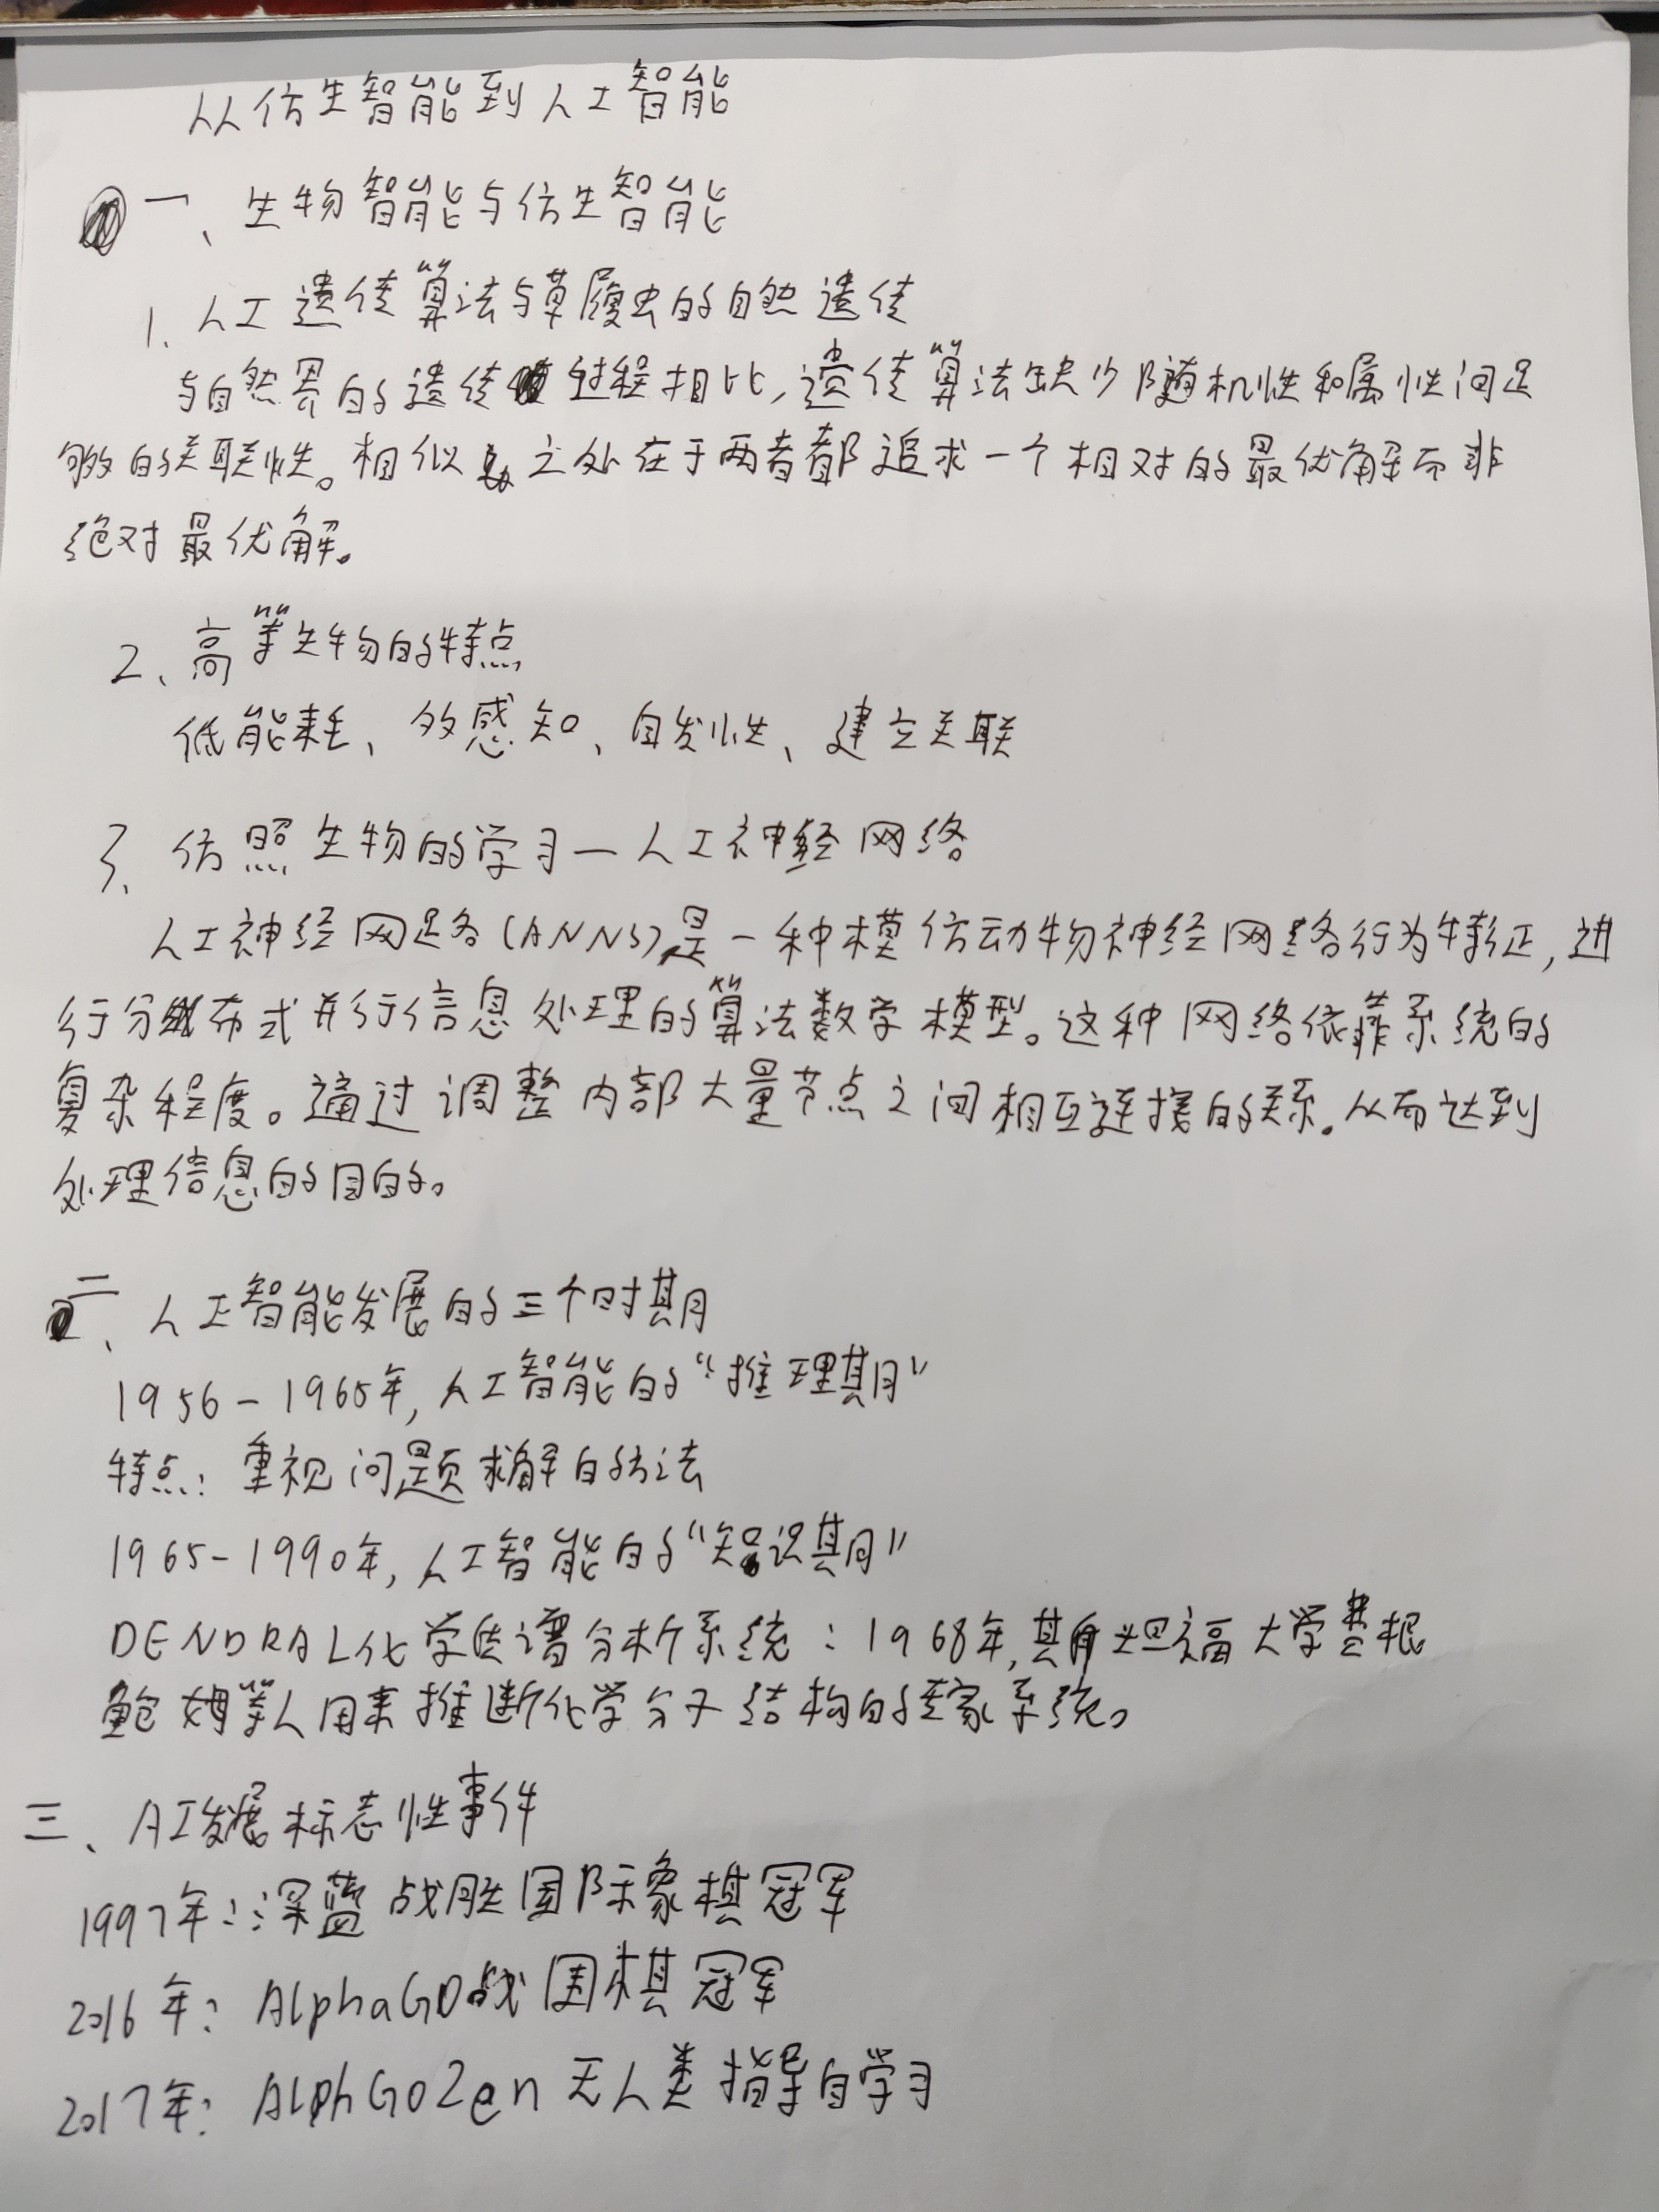 从仿生智能到人工智能
一、生物智能与仿生智能
1.人工遗传算法与草履虫的自然遗传
与自然界的遗传过程相比,遗传算法缺少随机性和属性间足
够的关联性。相似之处在于两者都追求一个相对的最优解而非
绝对最优解。
2、高等生物的特点
低能耗、多感知、自发性、建立关联
3、仿照生物的学习—人工神经网络
人工神经网络(ANNS)是一种模仿动物神经网络行为特征,进
行分布式并行信息处理的算法数学模型。这种网络依靠系统的
复杂程度。通过调整内部大量节点之间相互连接的关系。从而达到
处理信息的目的。
二、人工智能发展的三个时期
1956-1965年,人工智能的“推理期”
特点:重视问题求解的方法
1965-1990年,人工智能的“知识期”
DENDRAL化学质谱分析系统:1968年,斯坦福大学费根
鲍姆等人用来推断化学分子结构的专家系统。
三、AI发展标志性事件
1997年:深蓝战胜国际象棋冠军
2016年:AlphaGO战围棋冠军
2017年:AlphGoZen无人类指导自学习